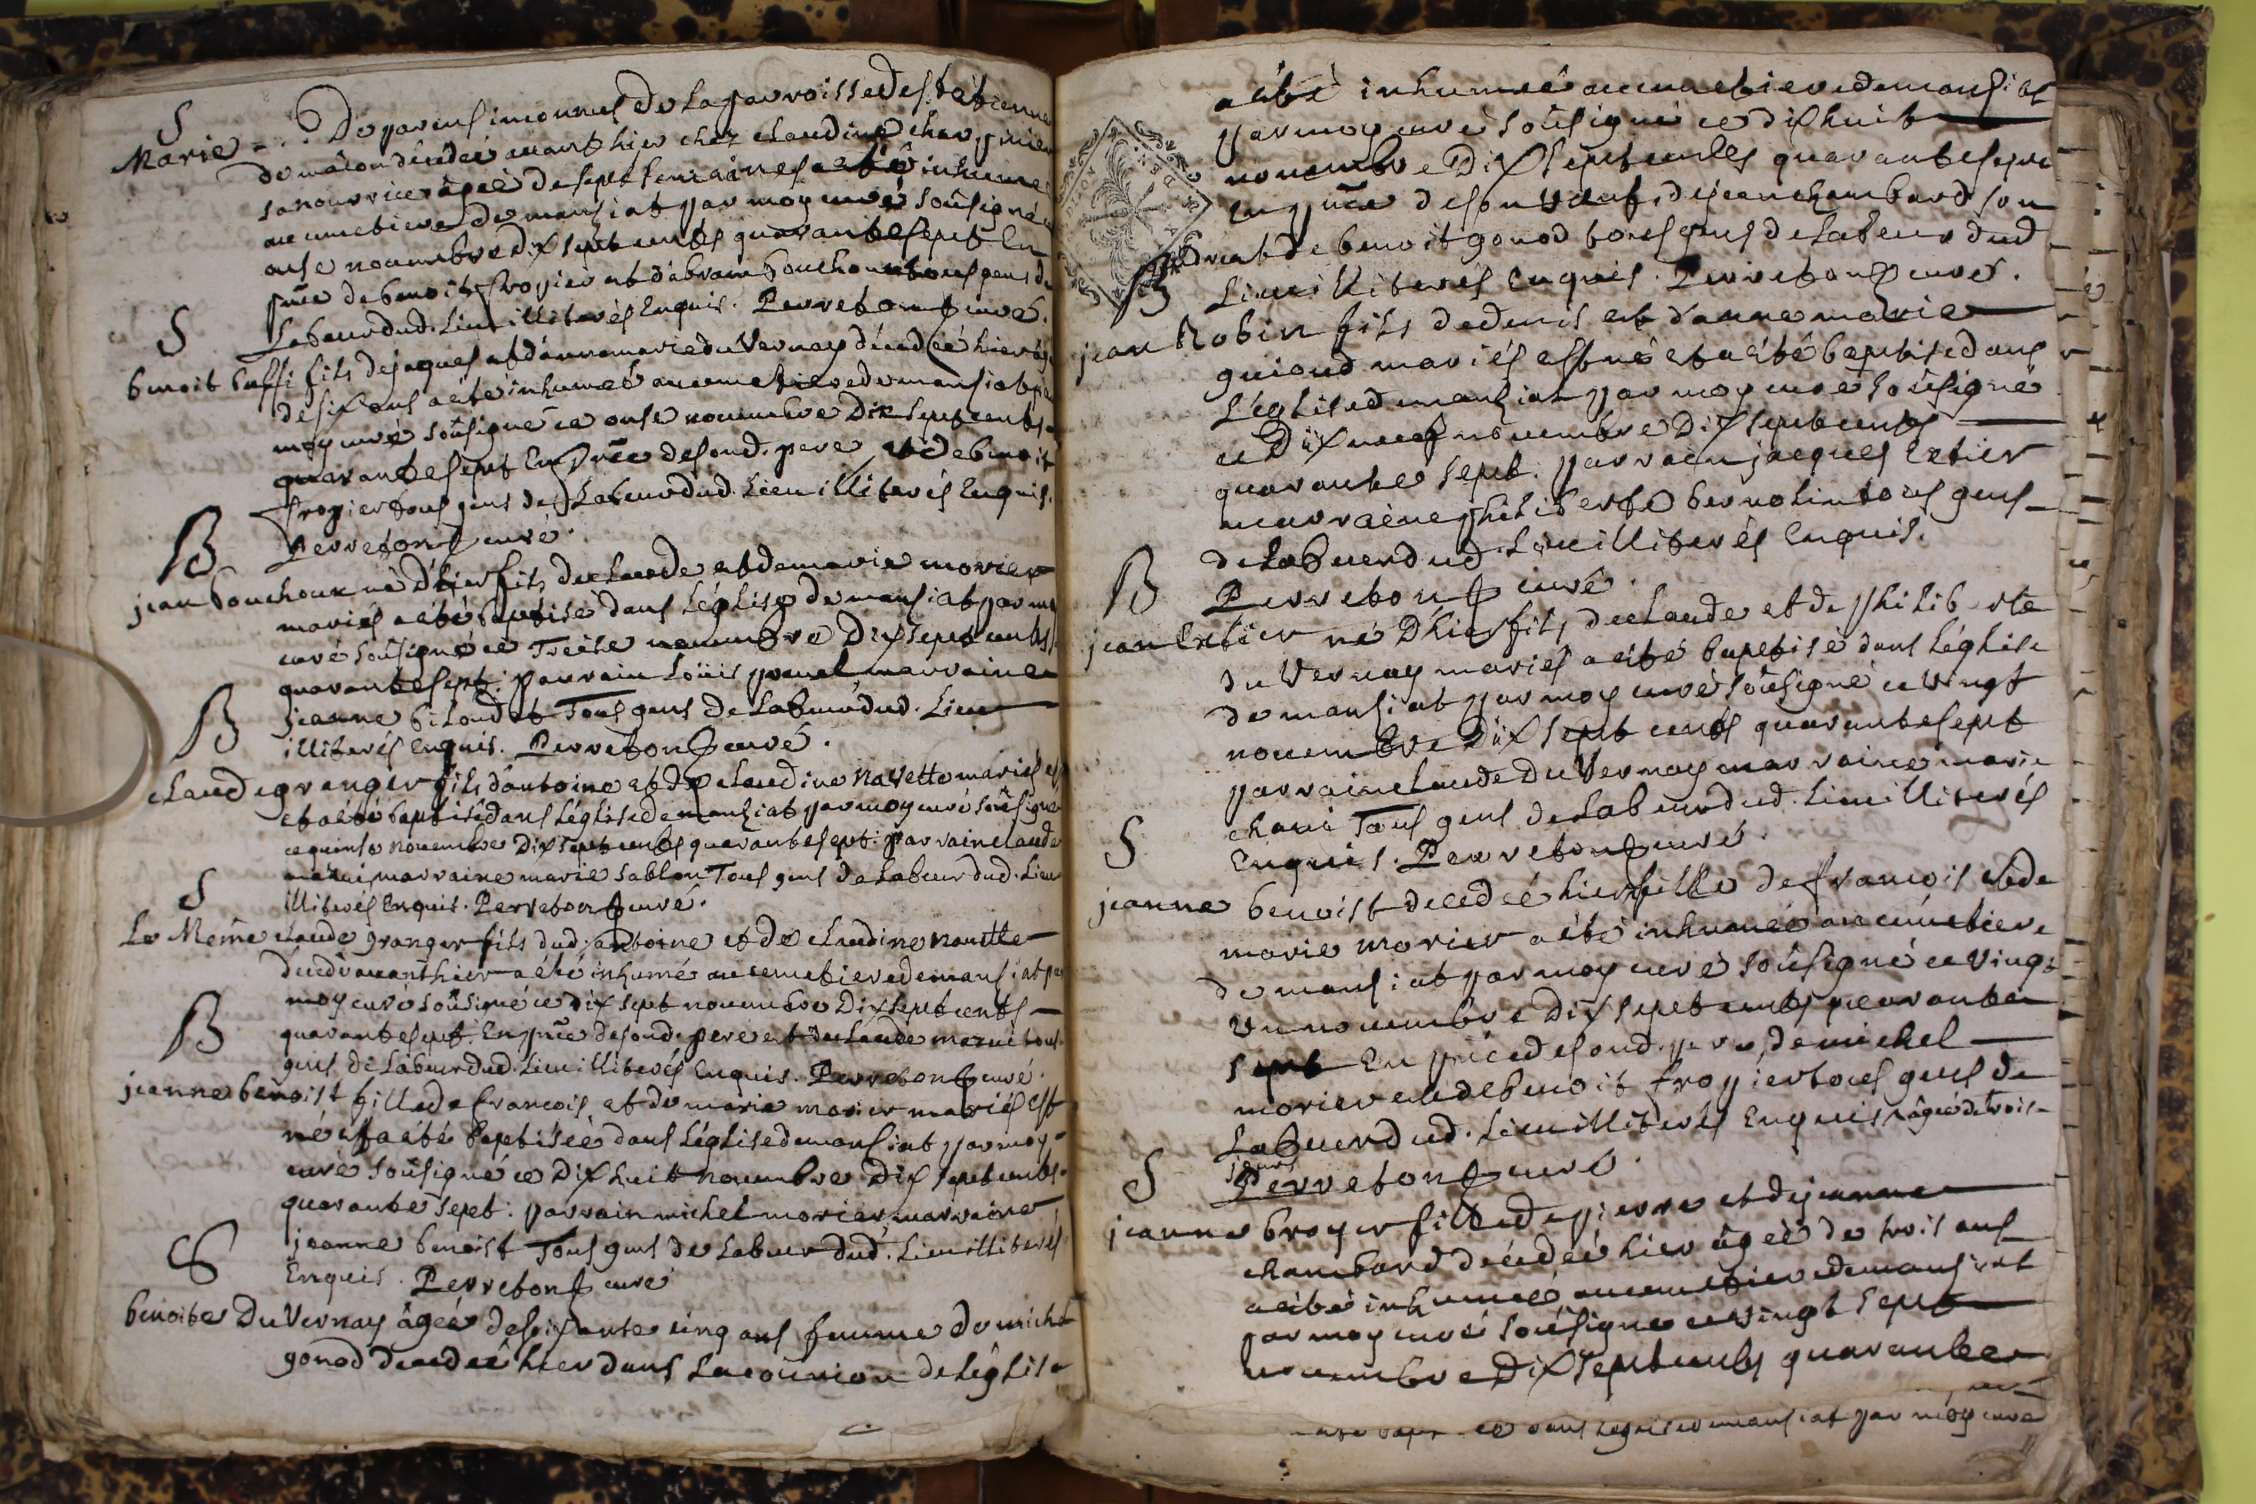 S
Marie ... De parens inconnus de la parroisse de st etienne
de mâcon décédée avant hier chez claudine charpenie
sa nourrice âgée de sept semaines a été inhumé
au cimetiere de mansiat par moy curé soûsigné
onse novembre dix sept cents quarante sept En
pñce de benoit froyier et d'abram bouchoux tous gens de
S
Labeur dud. Lieu illiterés Enquis. Perreton curé.
benoit buffi fils de jaques et d'anne marie du Vernay décedé hier âgé
de six ans a été inhumé au cimetiere de mansiat par
moy curé soûsigné ce onse novembre Dix sept cents
quarante sept En pñce de sond. pere et de benoit
froyier tous gens de Labeur dud. Lieu illiterés Enquis.
B
Perreton curé.
jean bouchoux né D'hier fils de claude et de marie morier
mariés a été baptisé dans L'église de mansiat par moy
curé soûsigné ce Treise novembre Dix sept cents
quarante sept. parrain Loüis marraine
B
jeanne Tous gens de Labeur dud. Lieu
illiterés Enquis. Perreton curé.
claude granger fils d'antoine et de claudine navette mariés est
et a été baptisé dans L'église de mansiat par moy curé soûsigné
ce quinse novembre Dix sept cents quarante sept. parrain claude
marraine marie sablon Tous gens de Labeur dud. Lieu
S
illiterés Enquis. Perreton curé.
Le Même claude granger fils dud. antoine et de claudine navette
décedé avant hier a été inhumé au cimetiere de mansiat par
moy curé soûsigné ce dix sept novembre Dix sept cents
B
quarante sept. En pñce de sond. pere et de claude tous
gens de Labeur dud. Lieu illiterés Enquis. Perreton curé.
jeanne benoist fille de francois et de marie morier mariés est
né et a été baptisée dans L'église de mansiat par moy
curé soûsigné ce Dix huit novembre Dix sept cents
quarante sept. parrain michel morier marraine
jeanne benoist Tous gens de Labeur dud. Lieu illiterés
S
Enquis. Perreton curé
benoite Du Vernay âgée de soixante cinq ans femme de michel
gonod decedée hier dans La coûnion de L'église
a été inhumée au cimetiere de mansiat
par moy curé soûsigné ce dix huit
novembre Dix sept cents quarante sept
En pñce de son veuf, de jean chambard son
et de benoit gonod tous gens de Labeur dud.
B
Lieu illiterés Enquis. Perreton curé.
jean Robin fils de denis et d'anne marie
guioud mariés est né et a été baptisé dans
L'église de mansiat par moy curé soûsigné
ce Dix neuf novembre Dix sept cents
quarante sept. parrain jacques Extier
marraine philiberte bernolin tous gens
de Labeur dud. Lieu illiterés Enquis.
B
Perreton curé.
jean Extier né D'hier fils de claude et de philiberte
du Vernay mariés a été baptisé dans L'église
de mansiat par moy curé soûsigné ce vingt
novembre Dix sept cents quarante sept
parrain claude Du Vernay marraine marie
Tous gens de Labeur dud. Lieu illiterés
S
Enquis. Perreton curé.
jeanne benoist decedée hier fille de francois et de
marie morier a été inhumée au cimetiere
de mansiat par moy curé soûsigné ce vingt
un novembre Dix sept cents quarante
sept En pñce de sond. pere, de michel
morier et de benoit froyier tous gens de
Labeur dud. Lieu illiterés Enquis âgée de trois
jours
S
Perreton curé.
jeanne broyer fille de pierre et de jeanne
chambard décedée hier âgée de trois ans
a été inhumée au cimetiere de mansiat
par moy curé soûsigné ce vingt sept
novembre Dix sept cents quarante
dans L'église de mansiat par moy curé